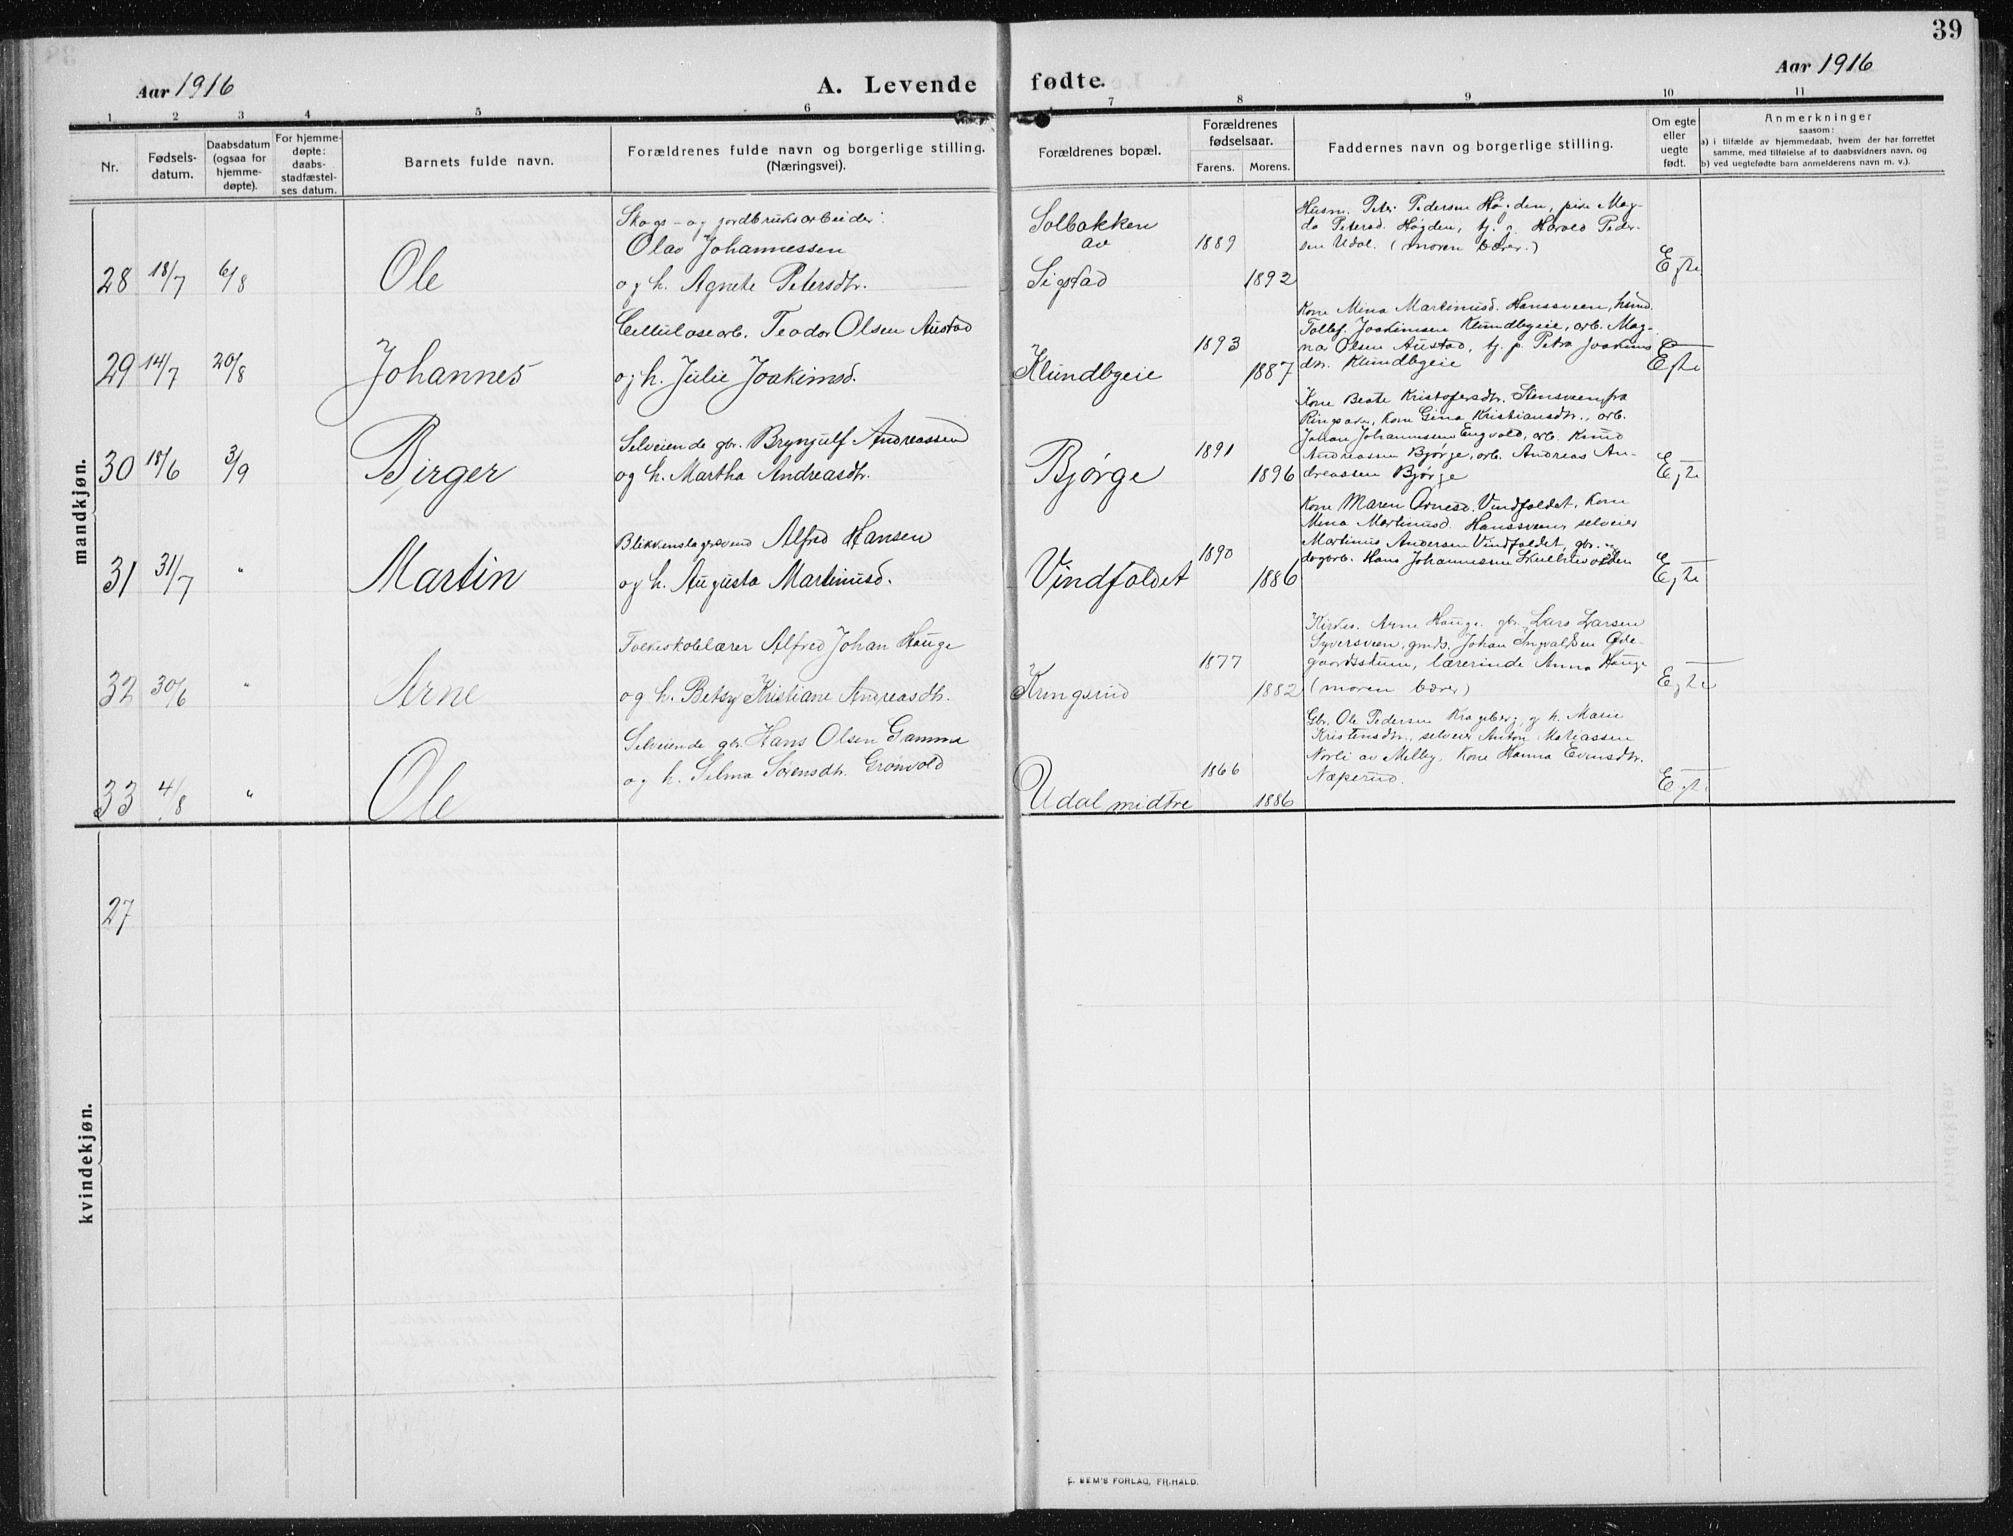 39
Aar 1916
A. Levende fødte.
Aar 1916
1 2 3 4 5 6 7 8 9 10 11
Nr.
Fødsels-
datum.
Daabsdatum
(ogsaa for
hjemme-
døpte).
For hjemme-
døpte:
daabs-
stadfæstel-
ses datum.
Barnets fulde navn.
Forældrenes fulde navn og borgerlige stilling.
(Næringsvei).
Forældrenes bopæl.
Forældrenes
fødselsaar.
Farens. Morens.
Faddernes navn og borgerlige stilling.
Om egte
eller
uegte
født.
Anmerkninger
saasom:
a) i tilfælde av hjemmedaab, hvem der har forrettet
samme, med tilføielse af to daabsvidners navn, og
b) ved uegtefødte barn anmelderens navn m. v.).
mandkjøn.
28 18/7 6/8 Ole
Skogs- og jordbruksarbeider:
Olav Johannessen
og h. Agnete Petersdtr.
Solbakken
av
Sigstad
1889
1892
Husm. Peter Pedersen Høgden, pike Mag-
da Petersd. Høgden, tj. g. Harald Peder-
sen Udal. (moren bærer.)
Egte
29 14/7 20/8 Johannes
Cellulosearb. Teodor Olsen Austad
og h. Julie Joakimsd.
Klundbyeie
1893
1887
Kone Mina Martinusd. Hanssveen, husmd.
Tollef Joakimsen Klundbyeie, arb. Mag-
nar Olsen Austad, tj. p. Petra Joakims
dtr. Klundbyeie
Egte
30 18/6 3/9 Birger
Selveiende gbr. Brynjulf Andreassen
og h. Martha Andreasdtr.
Bjørge
1891
1896
Kone Beate Kristofersdtr. Stensveen fra
Ringsaker, kone Gina Kristiansdtr., arb.
Johan Johannessen Engvold, arb. Knud
Andreassen Bjørge, arb. Andreas An-
dreassen Bjørge
Egte
31 31/7 " Martin
Blikkenslagersvend Alfred Hansen
og h. Augusta Martinusd.
Vindfaldet
1890
1886
Kone Maren Arnesd. Vindfaldet, kone
Mina Martinusd. Hanssveen, selveier
Martinus Andersen Vindfaldet, gbr. og
dagarb. Hans Johannessen
Egte
32 30/6 " Arne
Folkeskolelærer Alfred Johan Hauge
og h. Betsy Kristiane Andreasdtr.
Kringsrud
1877
1882
Arne Hauge, gbr. Lars Larsen
Syversveen, gmds. Johan Ingvaldsen Øde-
gaardsstuen, lærerinde Anna Hauge
(moren bærer)
Egte
33 4/8 " Ole
Selveiende gbr. Hans Olsen Gamma
og h. Selma Sørensdtr. Grønvold
Udal midtre
1866
1886
Gbr. Ole Pedersen Krageberg, g. h. Marie
Kristensdtr., selveier Anton Matiassen
Norli av Melby, kone Hanna Evensdtr.
Næperud.
Egte
kvindekjøn.
27
E. SEM'S FORLAG, FR.HALD.